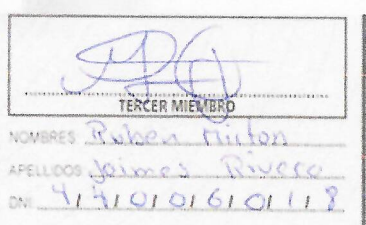 TERCER MIEMBRO
NOMBRES Ruben Milton
APELLIDOS Jaimes Rivera
DNI 44006018